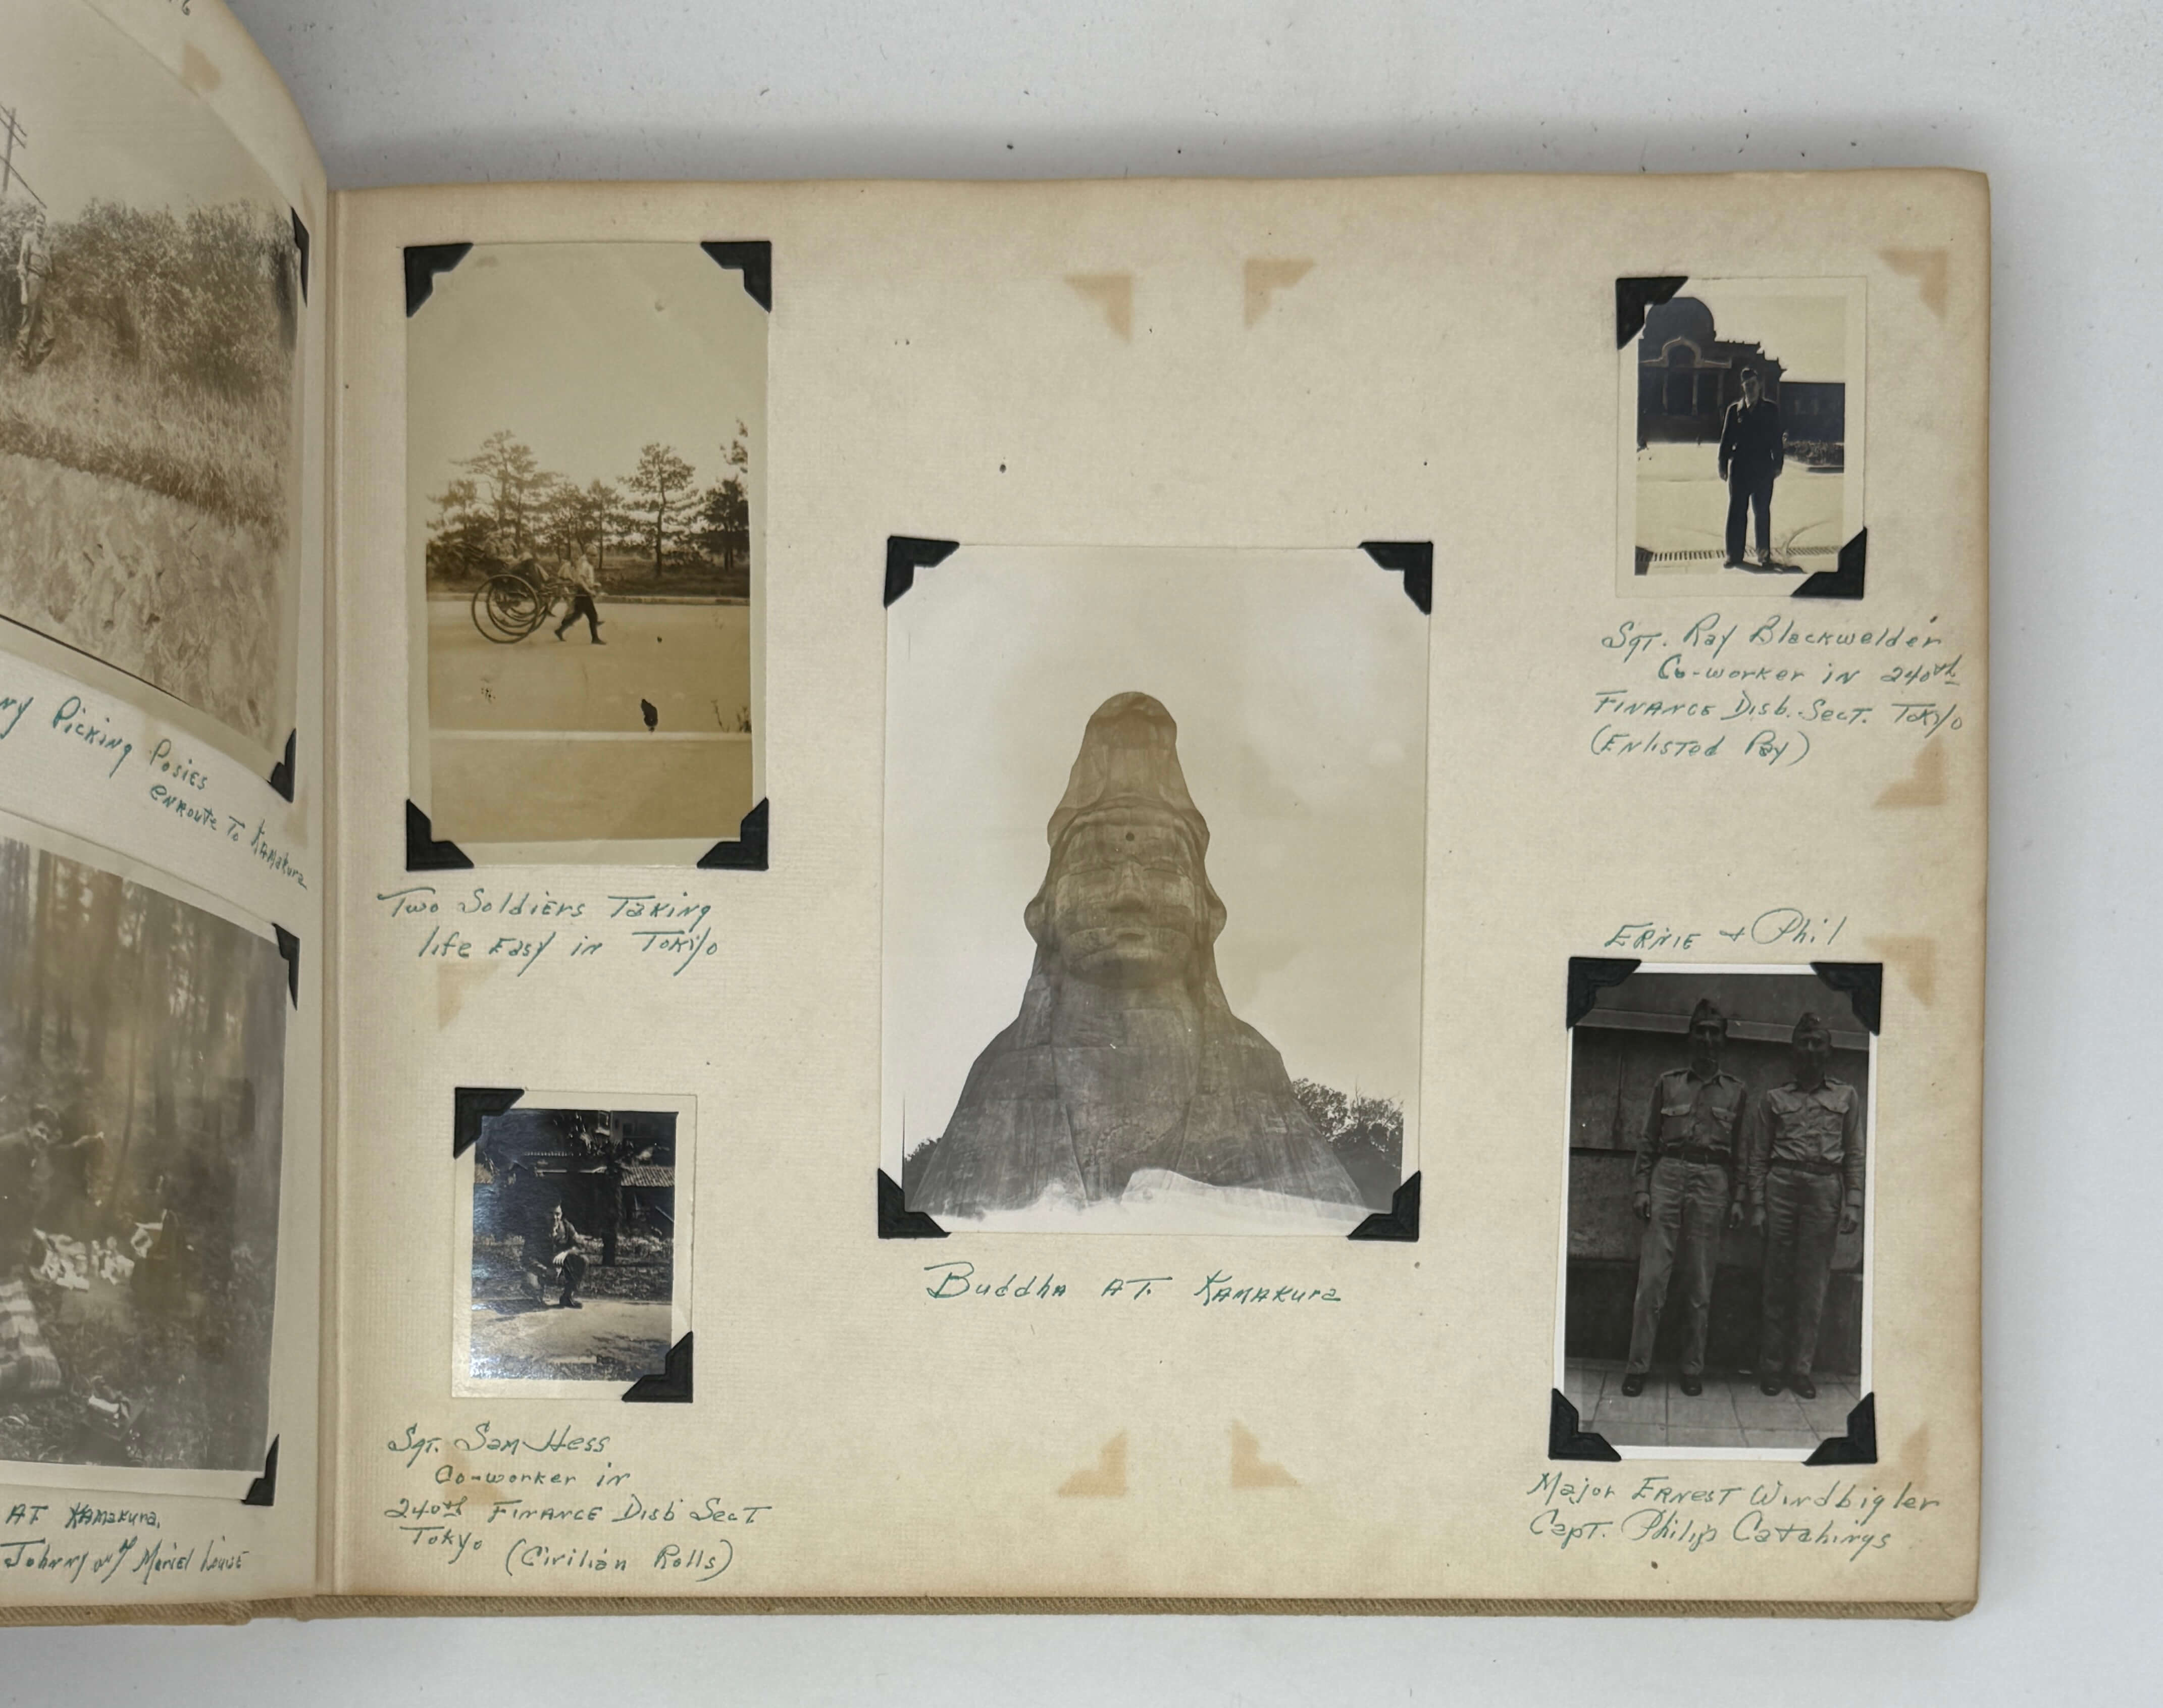 Picking Posies
enroute to Kamakura
AT Kamakura,
Johnny and Muriel Louise
Two Soldiers Taking
life Easy in Tokyo
Sgt. Sam Hess
Co-worker in
240th Finance Disb Sect
Tokyo (Civilian Rolls)
Buddha AT. Kamakura
Sgt. Ray Blackwelder
Co-worker in 240th
Finance Disb. Sect. Tokyo
(Enlisted Pay)
Ernie + Phil
Major Ernest Windbigler
Capt. Philip Catchings